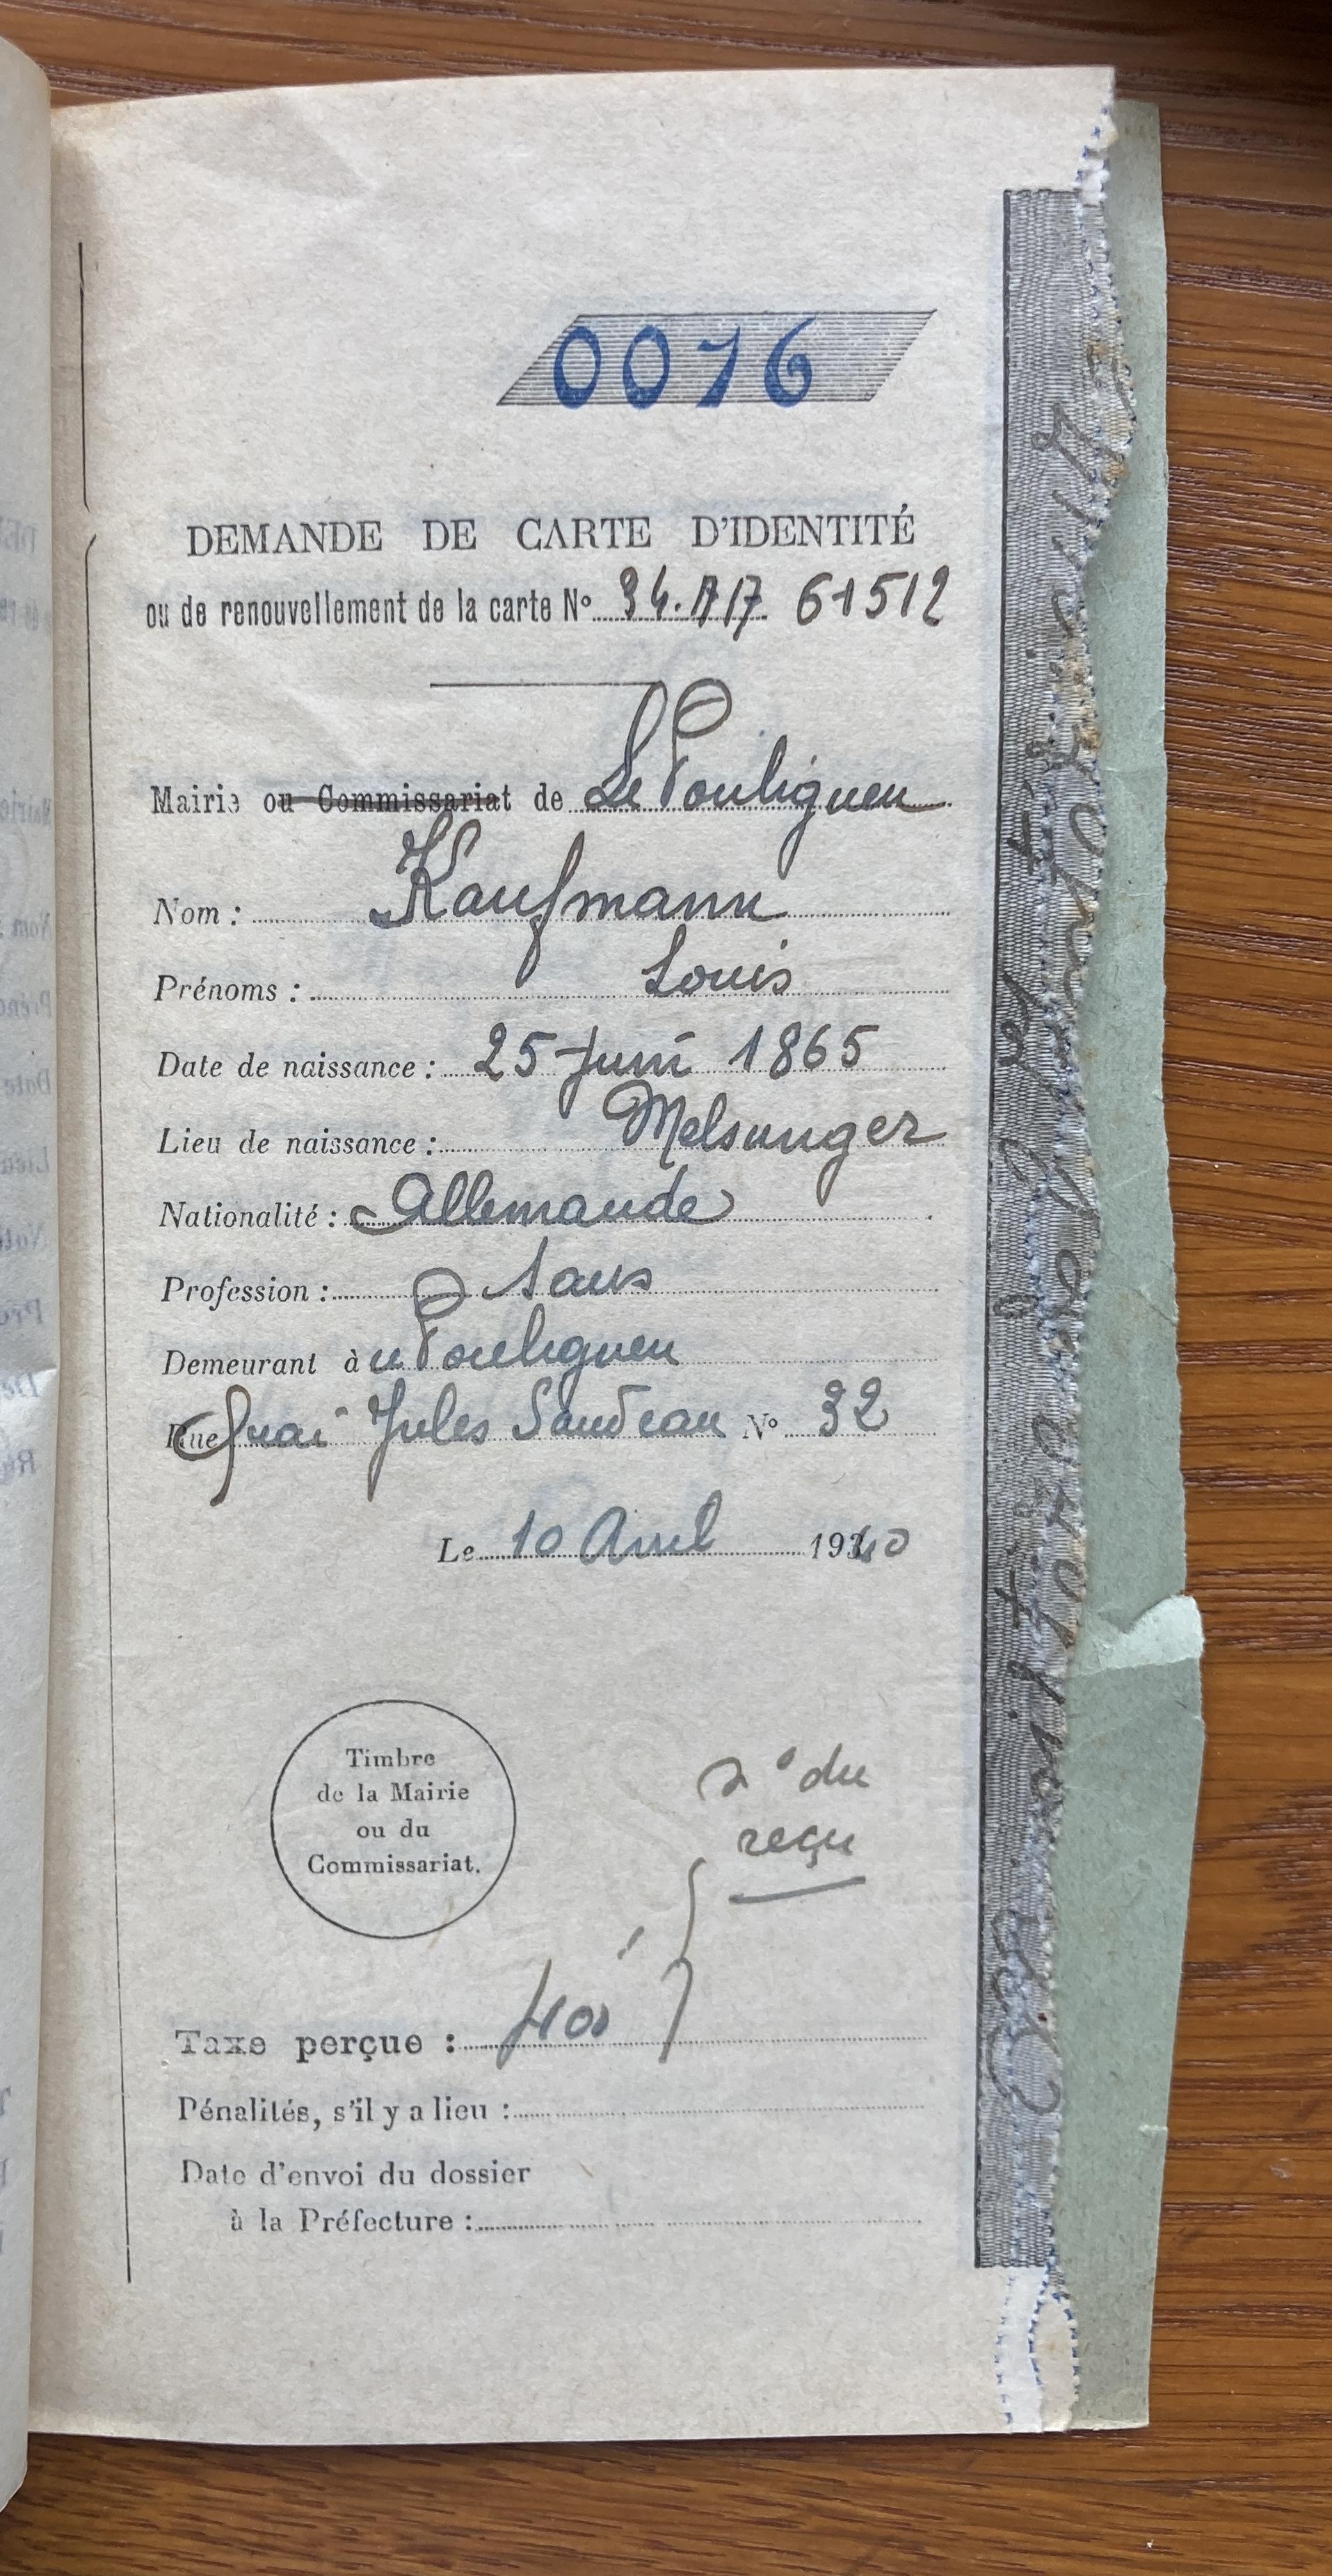 0076
DEMANDE DE CARTE D'IDENTITÉ
ou de renouvellement de la carte No 34.117 61512
Mairie ou Commissariat de Le Pouliguen
Nom : Kaufmann
Prénoms : Louis
Date de naissance : 25 Juin 1865
Lieu de naissance : Melsunger
Nationalité : Allemande
Profession : Sans
Demeurant à Le Pouliguen
Rue Quai Jules Sandeau No 32
Le 10 Avril 1940
Timbre
de la Mairie
ou du
Commissariat.
n° du
reçu
Taxe perçue : 400
Pénalités, s'il y a lieu :
Date d'envoi du dossier
à la Préfecture :